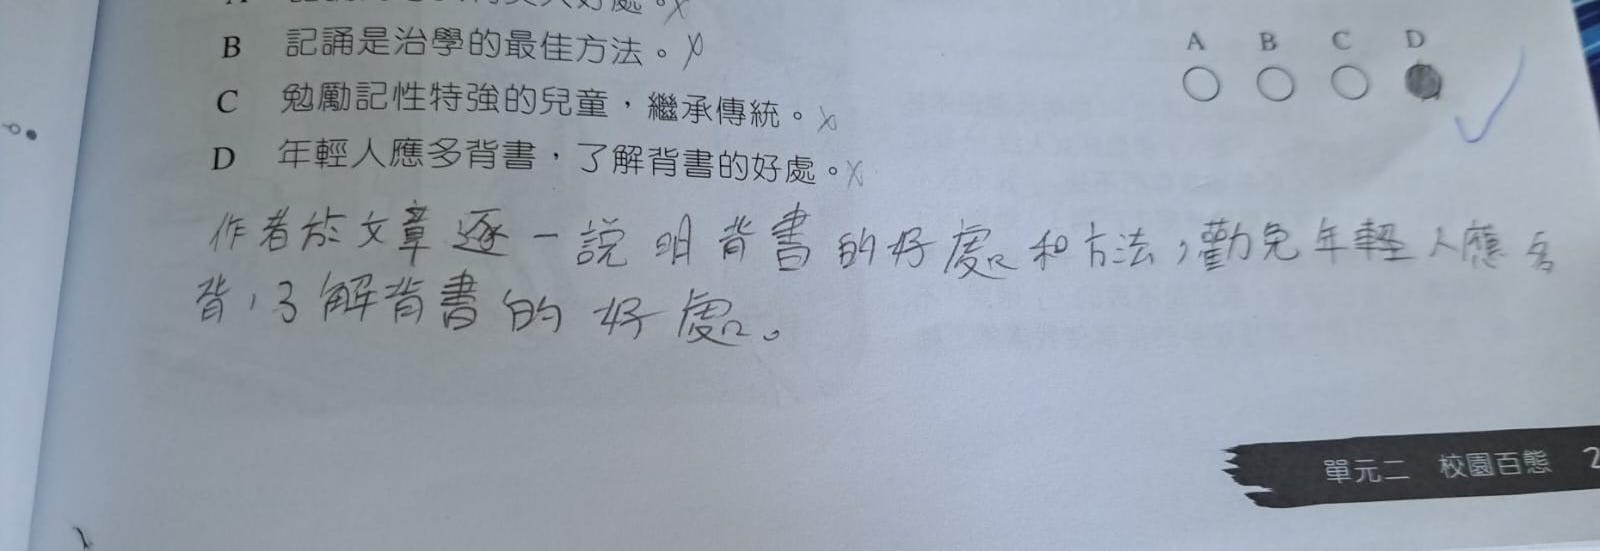 B 記誦是治學的最佳方法。
C 勉勵記性特強的兒童，繼承傳統。
D 年輕人應多背書，了解背書的好處。
A B C D
作者於文章逐一說明背書的好處和方法，勸免年輕人應多
背，了解背書的好處。
單元二 校園百態 2